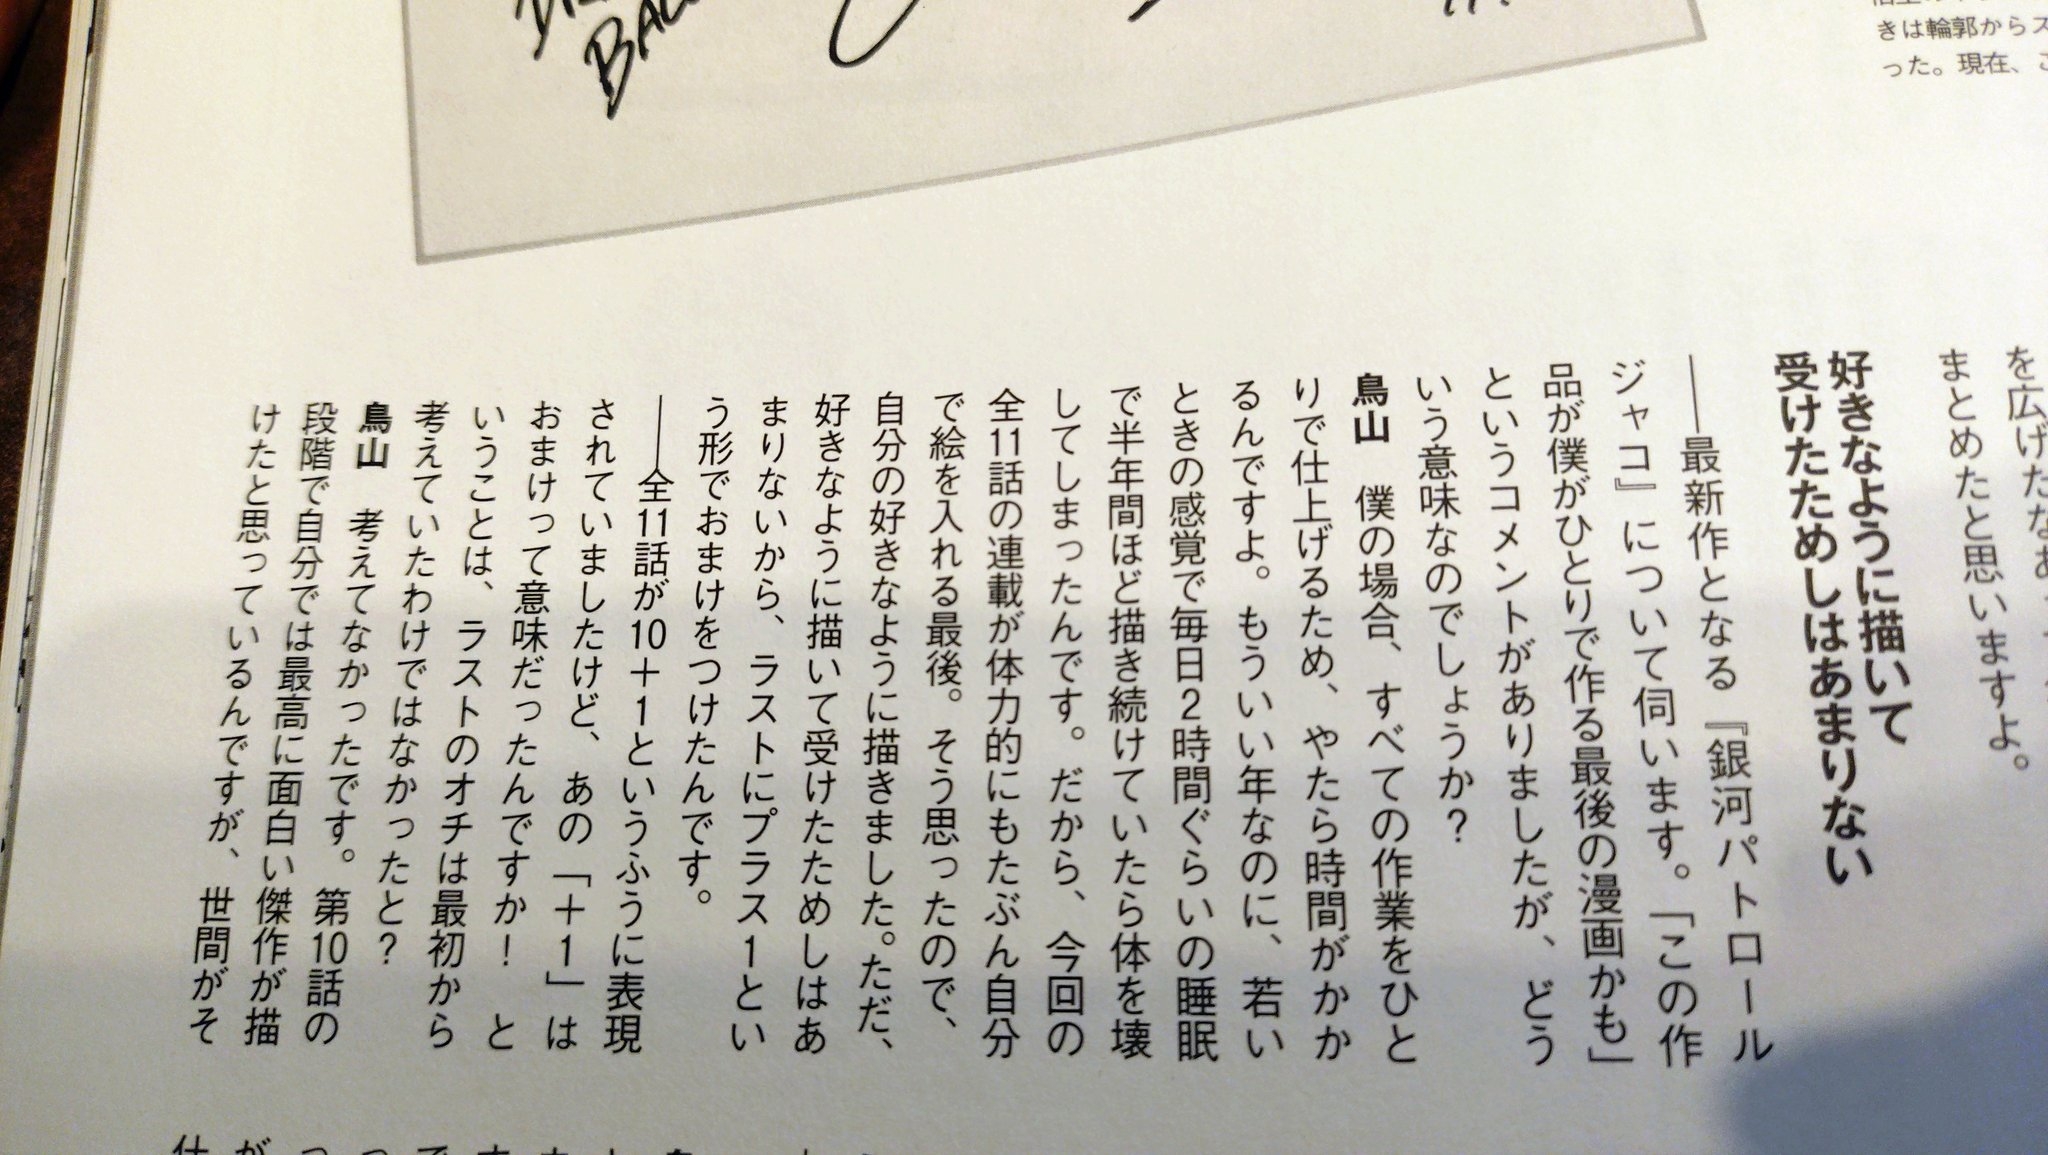 BALL
きは輪郭からス
った。現在、こ
を広げたなあ
まとめたと思いますよ。
好きなように描いて
受けたためしはあまりない
――最新作となる『銀河パトロール
ジャコ』について伺います。「この作
品が僕がひとりで作る最後の漫画かも」
というコメントがありましたが、どう
いう意味なのでしょうか?
鳥山　僕の場合、すべての作業をひと
りで仕上げるため、やたら時間がかか
るんですよ。もういい年なのに、若い
ときの感覚で毎日2時間ぐらいの睡眠
で半年間ほど描き続けていたら体を壊
してしまったんです。だから、今回の
全11話の連載が体力的にもたぶん自分
で絵を入れる最後。そう思ったので、
自分の好きなように描きました。ただ、
好きなように描いて受けたためしはあ
まりないから、ラストにプラス1とい
う形でおまけをつけたんです。
――全11話が10+1というふうに表現
されていましたけど、あの「+1」は
おまけって意味だったんですか!　と
いうことは、ラストのオチは最初から
考えていたわけではなかったと?
鳥山　考えてなかったです。第10話の
段階で自分では最高に面白い傑作が描
けたと思っているんですが、世間がそ